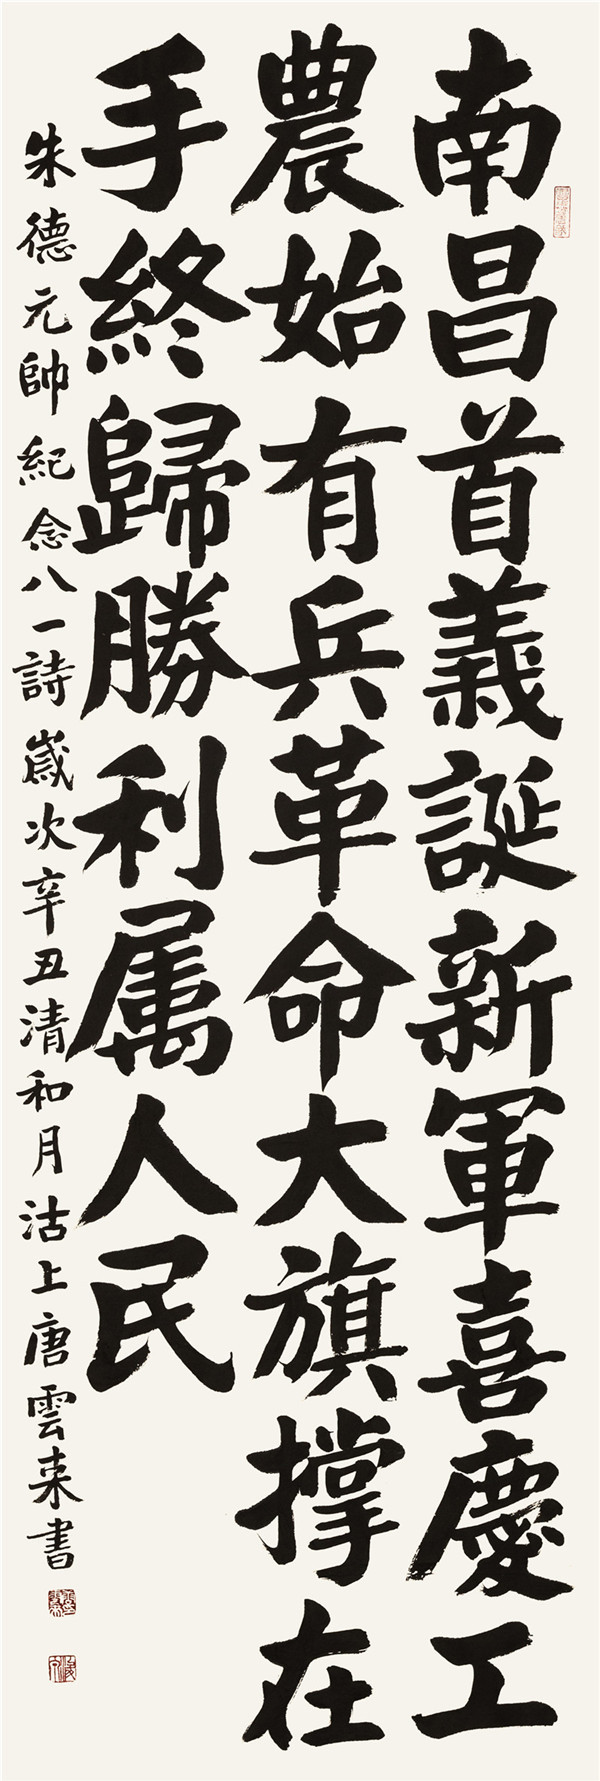 南昌首義誕新軍喜慶工
農始有兵革命大旗撐在
手終歸勝利属人民
朱德元帥紀念八一詩歲次辛丑清和月沽上唐雲来書